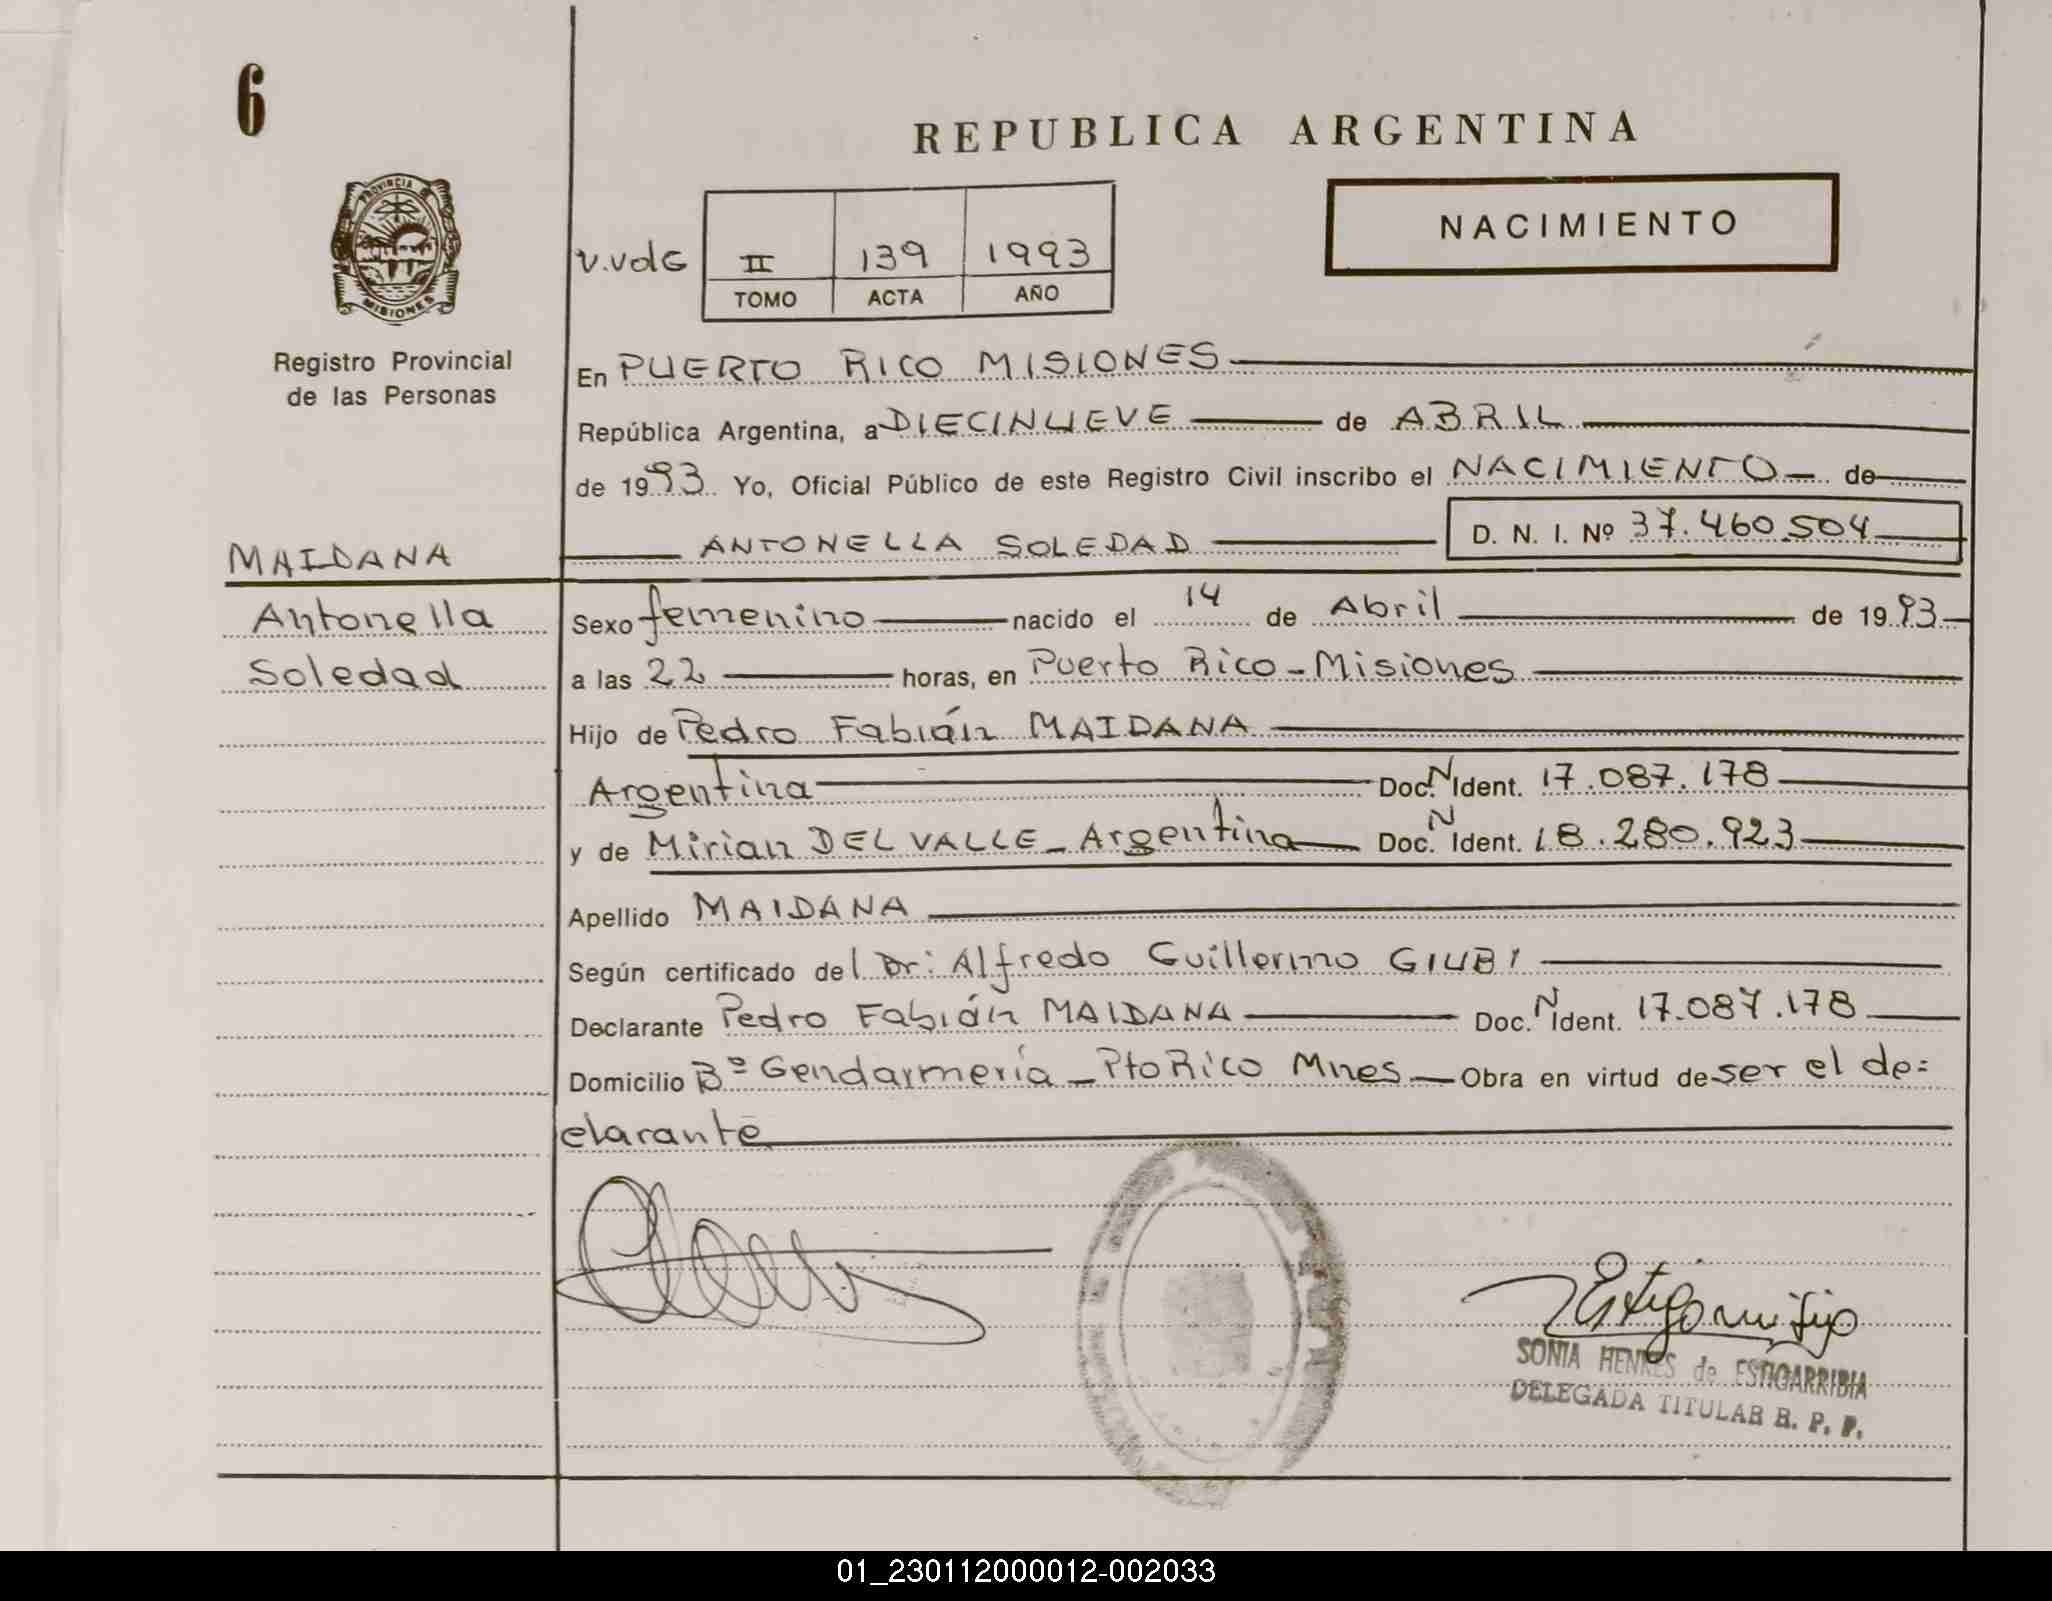 6
REPUBLICA ARGENTINA
NACIMIENTO
PROVINCIA DE
MISIONES
V.Vdlg II 139 1993
TOMO ACTA AÑO
Registro Provincial
de las Personas
En PUERTO RICO MISIONES
República Argentina, a DIECINUEVE de ABRIL
de 1993. Yo, Oficial Público de este Registro Civil inscribo el NACIMIENTO de
MAIDANA
ANTONELLA SOLEDAD D. N. I. Nº 37.460.504
Antonella
Soledad
Sexo femenino nacido el 14 de Abril de 1993
a las 22 horas, en Puerto Rico - Misiones
Hijo de Pedro Fabián MAIDANA
Argentina Doc. N Ident. 17.087.178
y de Mirian DEL VALLE - Argentina Doc. N Ident. 18.280.923
Apellido MAIDANA
Según certificado del Dr: Alfredo Guillermo GIUBI
Declarante Pedro Fabián MAIDANA Doc. N Ident. 17.087.178
Domicilio Bº Gendarmería - Pto Rico Mnes - Obra en virtud de ser el de=
clarante
SONIA HENKES de ESTIGARRIBIA
DELEGADA TITULAR R. P. P.
01_230112000012-002033